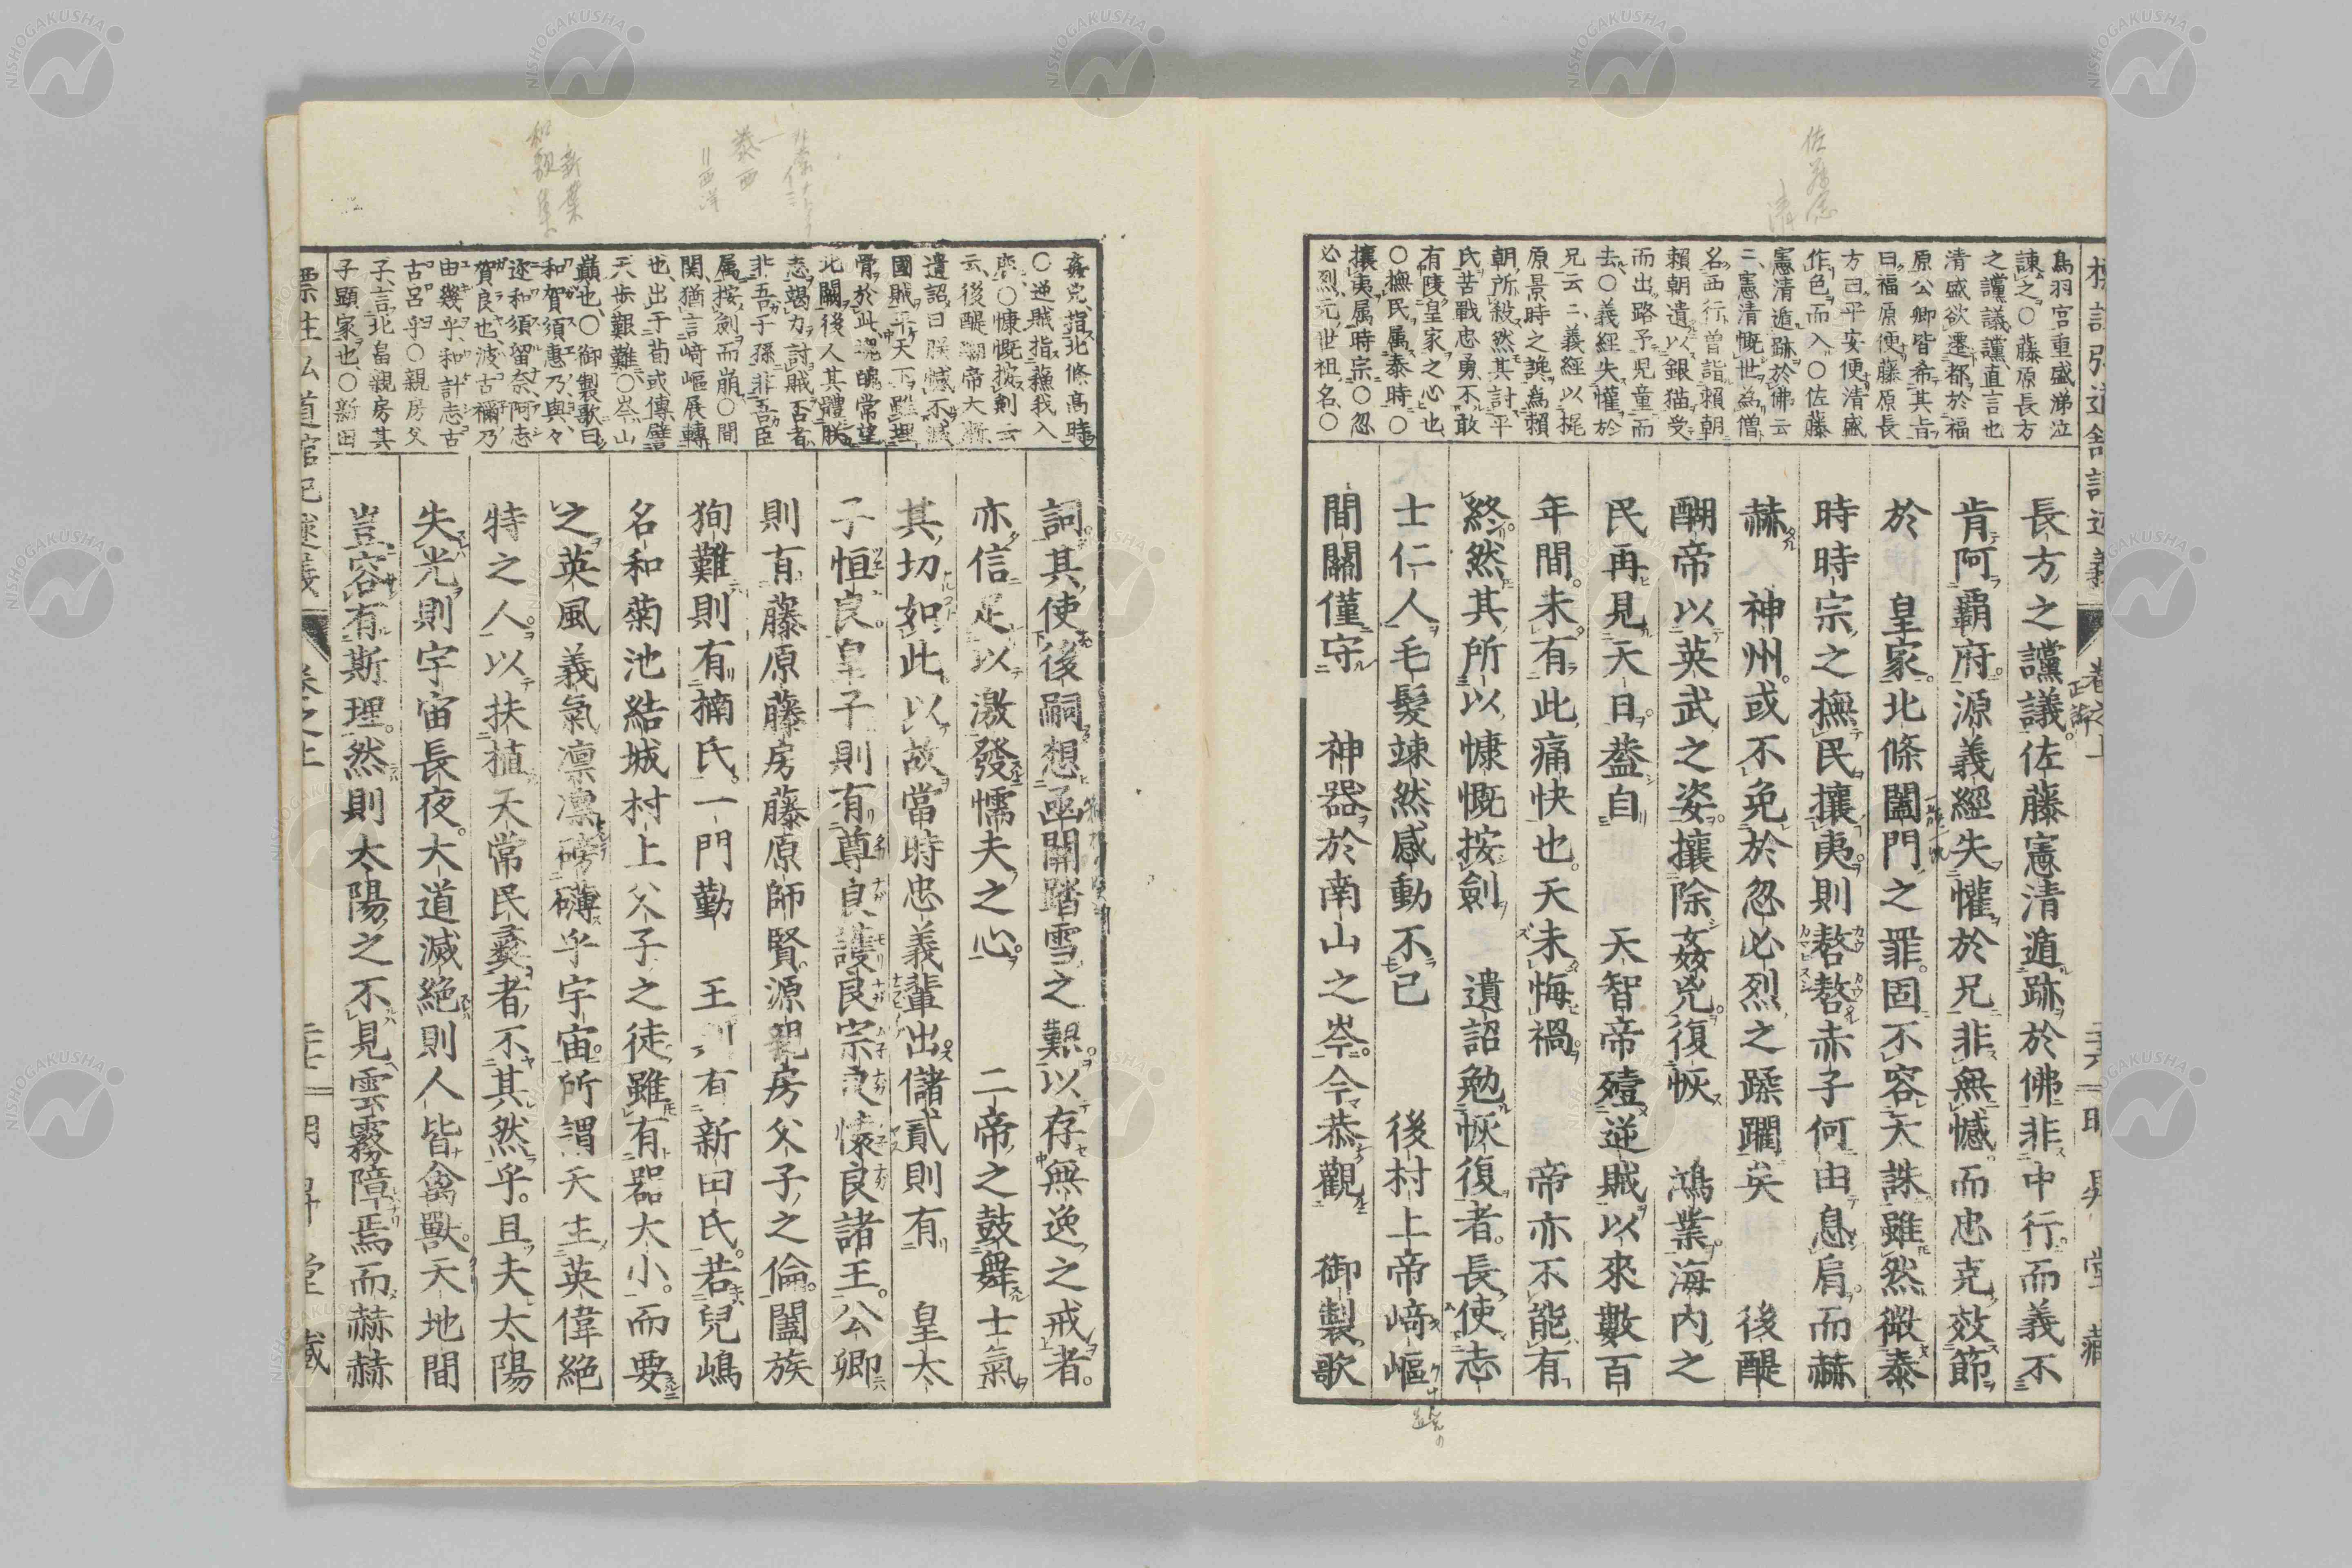 長方之讜議佐藤憲清遁跡於佛非中行而義不
肯阿覇府源義經失懽於兄非無憾而忠克效節
於　皇家北條闔門之罪固不容天誅雖然微泰
時時宗之撫民攘夷則嗸嗸赤子何由息肩而赫
赫　神州或不免於忽必烈之蹂躙矣　　後醍
醐帝以英武之姿攘除姦兇復恢　鴻業海內之
民再見天日葢自　　天智帝殪逆賊以來數百
年間未有此痛快也天未悔禍　　帝亦不能有
終然其所以慷慨按劍　遺詔勉恢復者長使志
士仁人毛髮竦然感動不已　　後村上帝﨑嶇
間關僅守　神器於南山之岑今恭觀　御製歌
鳥羽宮重盛涕泣
諫之○藤原長方
之讜議讜直言也
清盛欲遷都於福
原公卿皆希其旨
曰福原便藤原長
方曰平安便清盛
作色而入○佐藤
憲清遁跡於佛云
云憲清慨世為僧
名西行曽詣賴朝
賴朝遺以銀猫受
而出路予児童而
去○義經失懽於
兄云云義經以梶
原景時之譖為賴
朝所殺然其討平
氏苦戰忠勇不敢
有陵皇家之心也
○撫民属泰時○
攘夷属時宗○忽
必烈元世祖名○
詞其使後嗣想函開踏雪之艱以存無逸之戒者
亦信足以激發懦夫之心　　二帝之鼓舞士氣
其切如此以故當時忠義輩出儲貳則有　皇太
子恒良皇子則有尊良護良宗良懷良諸王公卿
則有藤原藤房藤原師賢源親房父子之倫闔族
狥難則有楠氏一門勤　王則有新田氏若兒嶋
名和菊池結城村上父子之徒雖有器大小而要
之英風義氣凛凛磅礴乎宇宙所謂天主英偉絶
特之人以扶植天常民彝者不其然乎且夫太陽
失光則宇宙長夜大道滅絶則人皆禽獸天地間
豈容有斯理然則太陽之不見雲霧障焉而赫赫
姦兇指北條高時
○逆賊指蘓我入
鹿○慷慨按劍云
云後醍醐帝大漸
遺詔曰朕憾不滅
國賊平天下雖埋
骨於此魂魄常望
北闕後人其體朕
志竭力討賊否者
非吾子孫非吾臣
属按劍而崩○間
関猶言﨑嶇展轉
也出于荀或傳譬
天歩艱難○岑山
巓也○御製歌曰
和賀須惠乃與々
逐和須留奈阿志
賀良也波古禰乃
由幾乎和計志古
古呂乎○親房父
子言北畠親房其
子顕家也○新田
卷之上